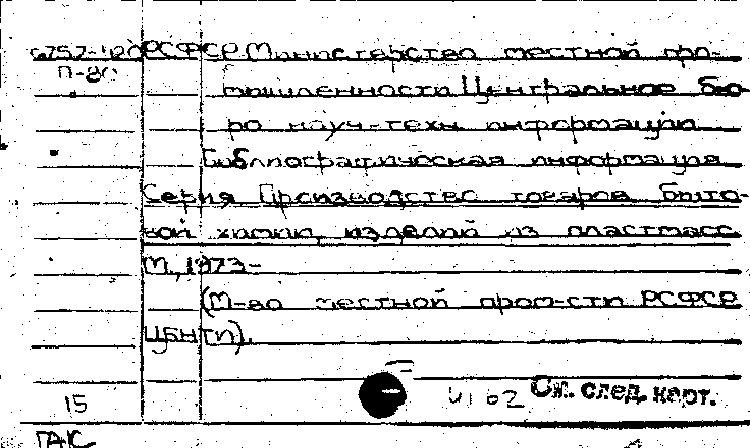 РСФСР Министерство местной про-
П-80
мышленности Центральное бю-
ро науч-техн. информации
Библиографическая информация
Серия Производство товаров быто-
вой химии, изделий из пластмасс.
М., 1973-
(М-во местной пром-сти РСФСР
ЦБНТИ).
15
См. след. карт.
ГАК